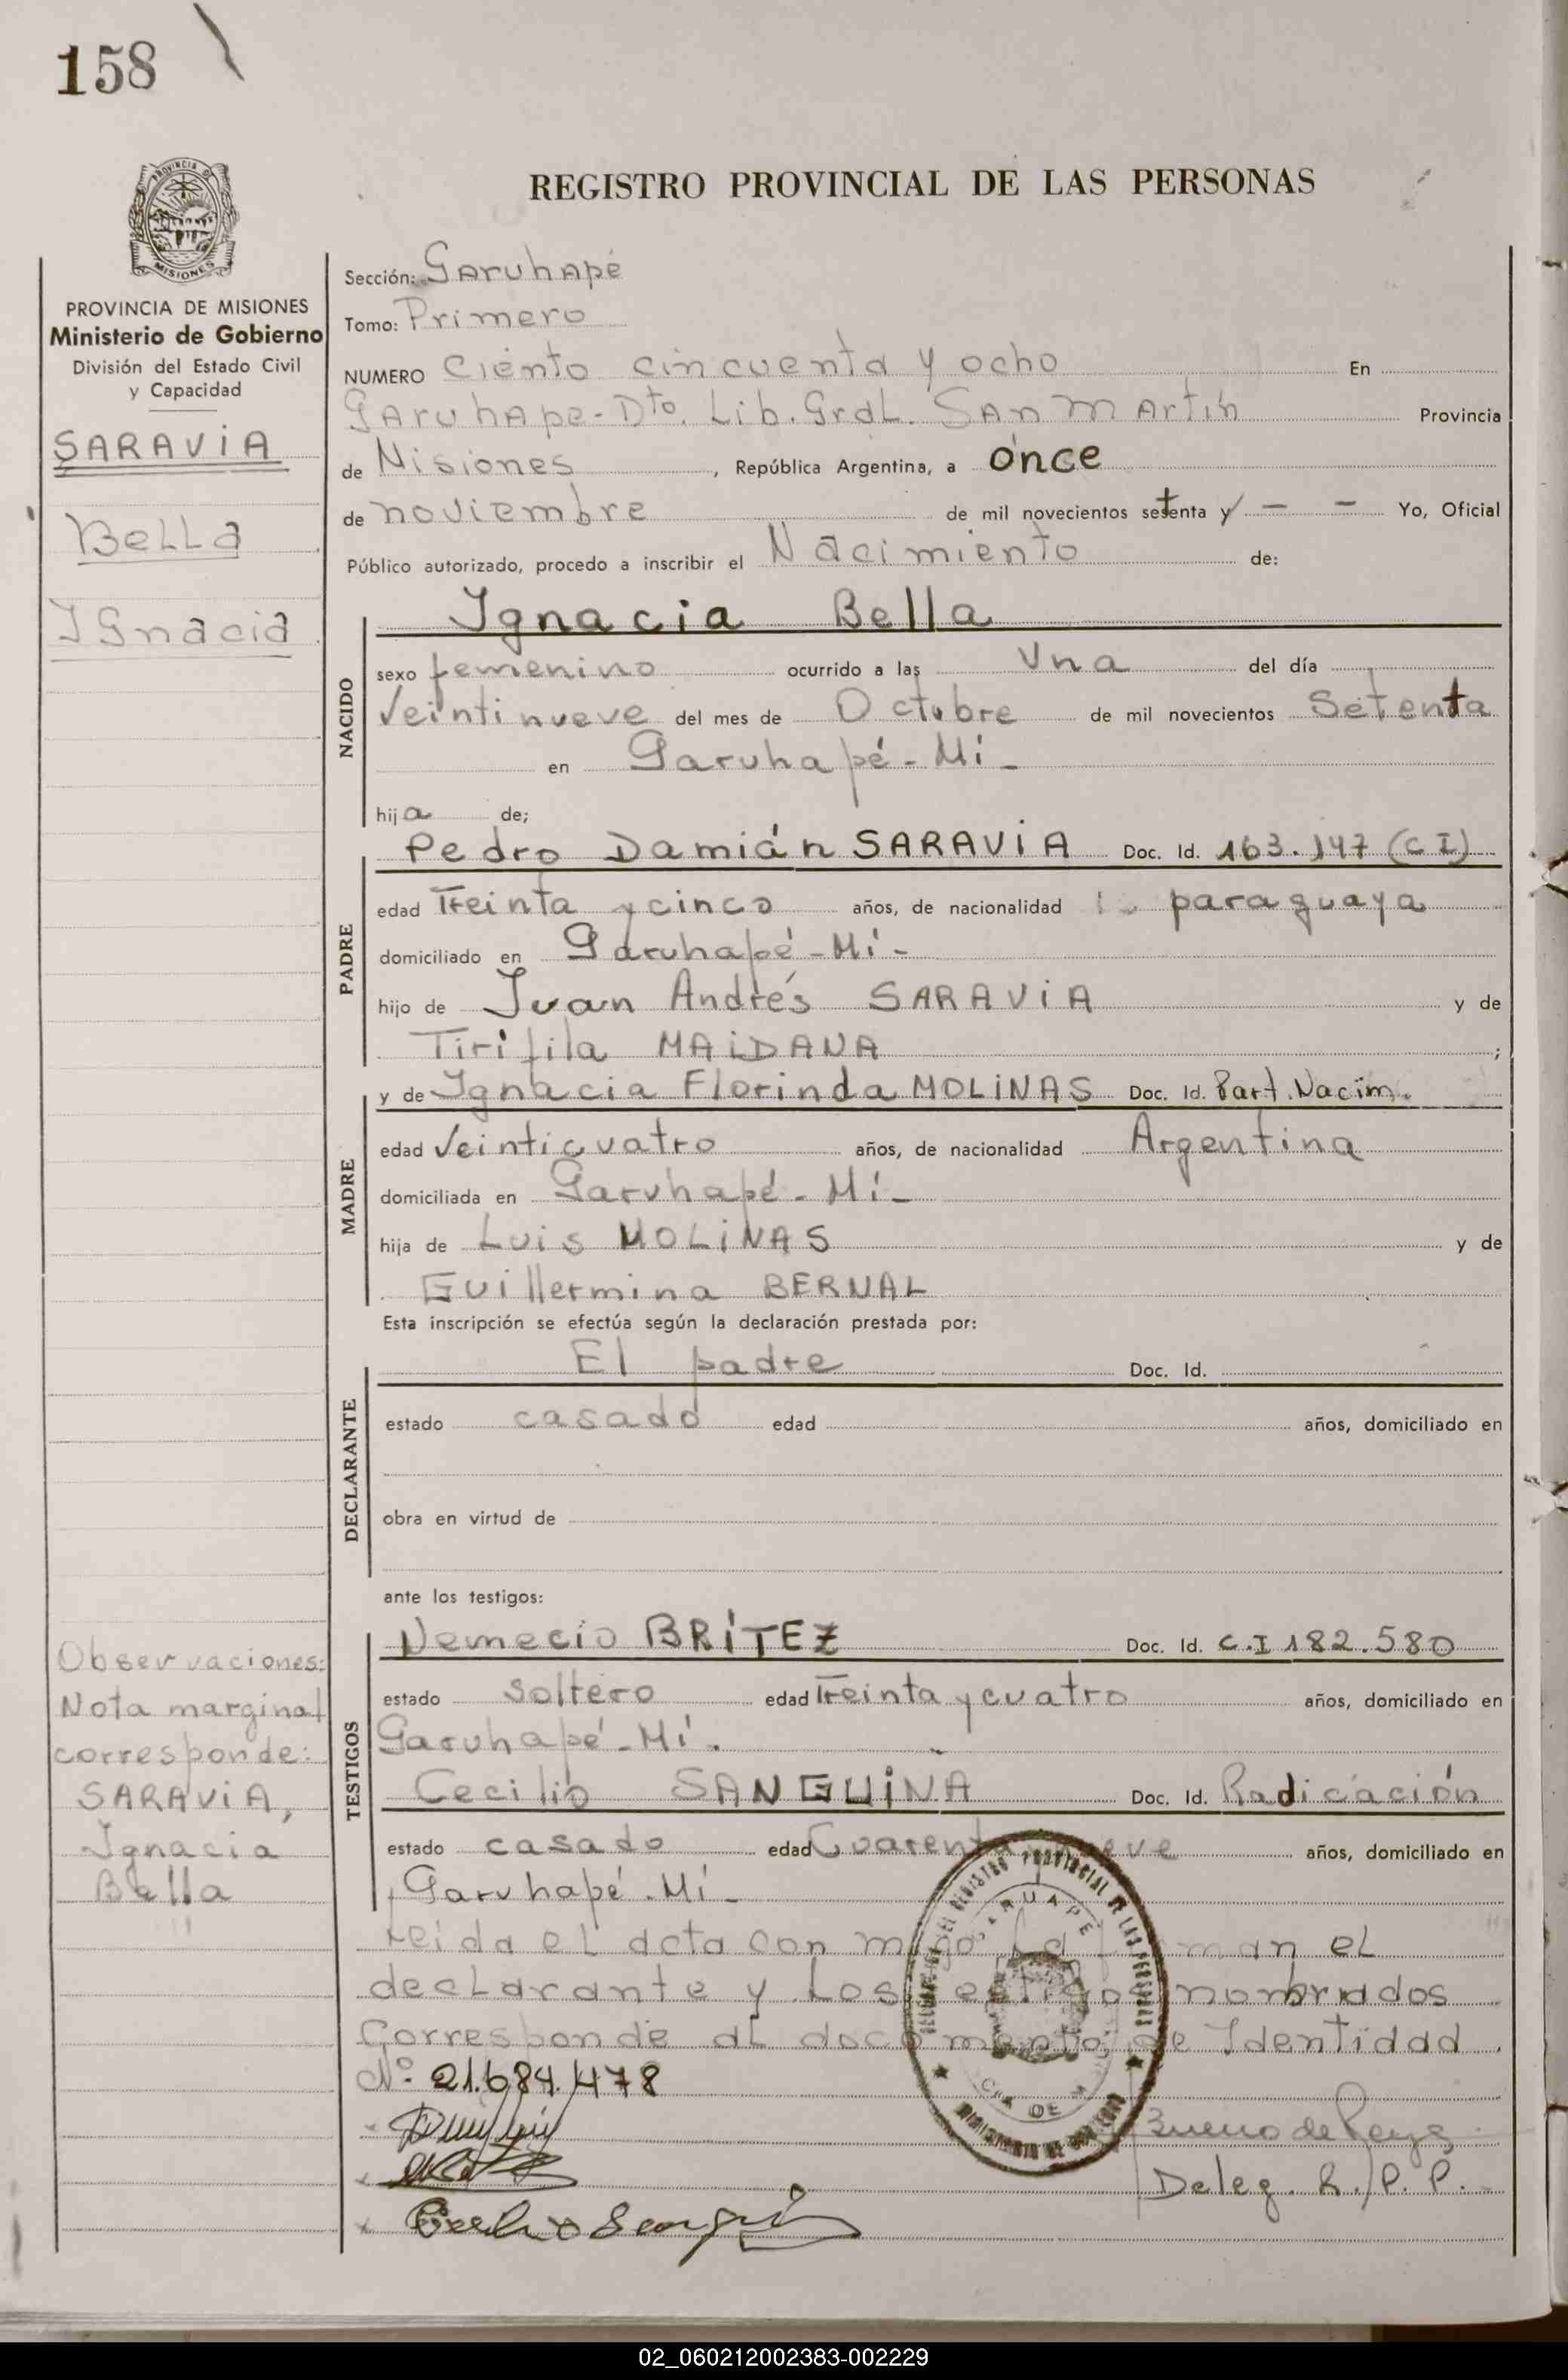 158
REGISTRO PROVINCIAL DE LAS PERSONAS
PROVINCIA DE MISIONES
Ministerio de Gobierno
División del Estado Civil
y Capacidad
SARAVIA
Bella
Ignacia
Observaciones:
Nota marginal
corresponde:
SARAVIA,
Ignacia
Bella
Sección: Garuhapé
Tomo: Primero
NUMERO Ciento cincuenta y ocho En
Garuhape - Dto. Lib. Grdl. San Martín Provincia
de Misiones, República Argentina, a once
de noviembre de mil novecientos setenta y - - Yo, Oficial
Público autorizado, procedo a inscribir el Nacimiento de:
Ignacia Bella
NACIDO
sexo femenino ocurrido a las Una del día
Veintinueve del mes de Octubre de mil novecientos Setenta
en Garuhapé - Mí -
hija de;
Pedro Damián SARAVIA Doc. Id. 163.147 (C I)
PADRE
edad Treinta y cinco años, de nacionalidad paraguaya
domiciliado en Garuhapé - Mí -
hijo de Juan Andrés SARAVIA y de
Tirifila MAIDANA ;
y de Ignacia Florinda MOLINAS Doc. Id. Part. Nacim.
MADRE
edad Veinticuatro años, de nacionalidad Argentina
domiciliada en Garuhapé - Mí -
hija de Luis MOLINAS y de
Guillermina BERNAL
Esta inscripción se efectúa según la declaración prestada por:
El padre Doc. Id.
DECLARANTE
estado casado edad años, domiciliado en
obra en virtud de
ante los testigos:
Nemecio BRÍTEZ Doc. Id. C.I 182.580
TESTIGOS
estado soltero edad Treinta y cuatro años, domiciliado en
Garuhapé - Mí.
Cecilio SANGUINA Doc. Id. Radicación
estado casado edad años, domiciliado en
Garuhapé - Mí -
Leida el acta con migo, la el
declarante y los nombrados
Corresponde al documento de Identidad
Nº 21.684.478
Bueno de Reyes
Deleg. R. P. P.
02_060212002383-002229